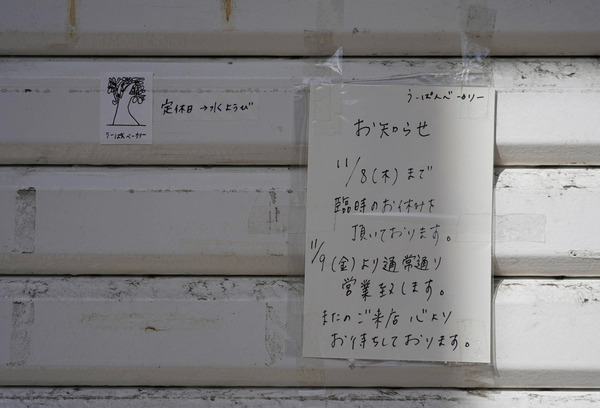 うーぱんベーカリー
定休日→水ようび
うーぱんベーカリー
お知らせ
11/8(木)まで
臨時のお休みを
頂いております。
11/9(金)より通常通り
営業致します。
またのご来店 心より
お待ちしております。